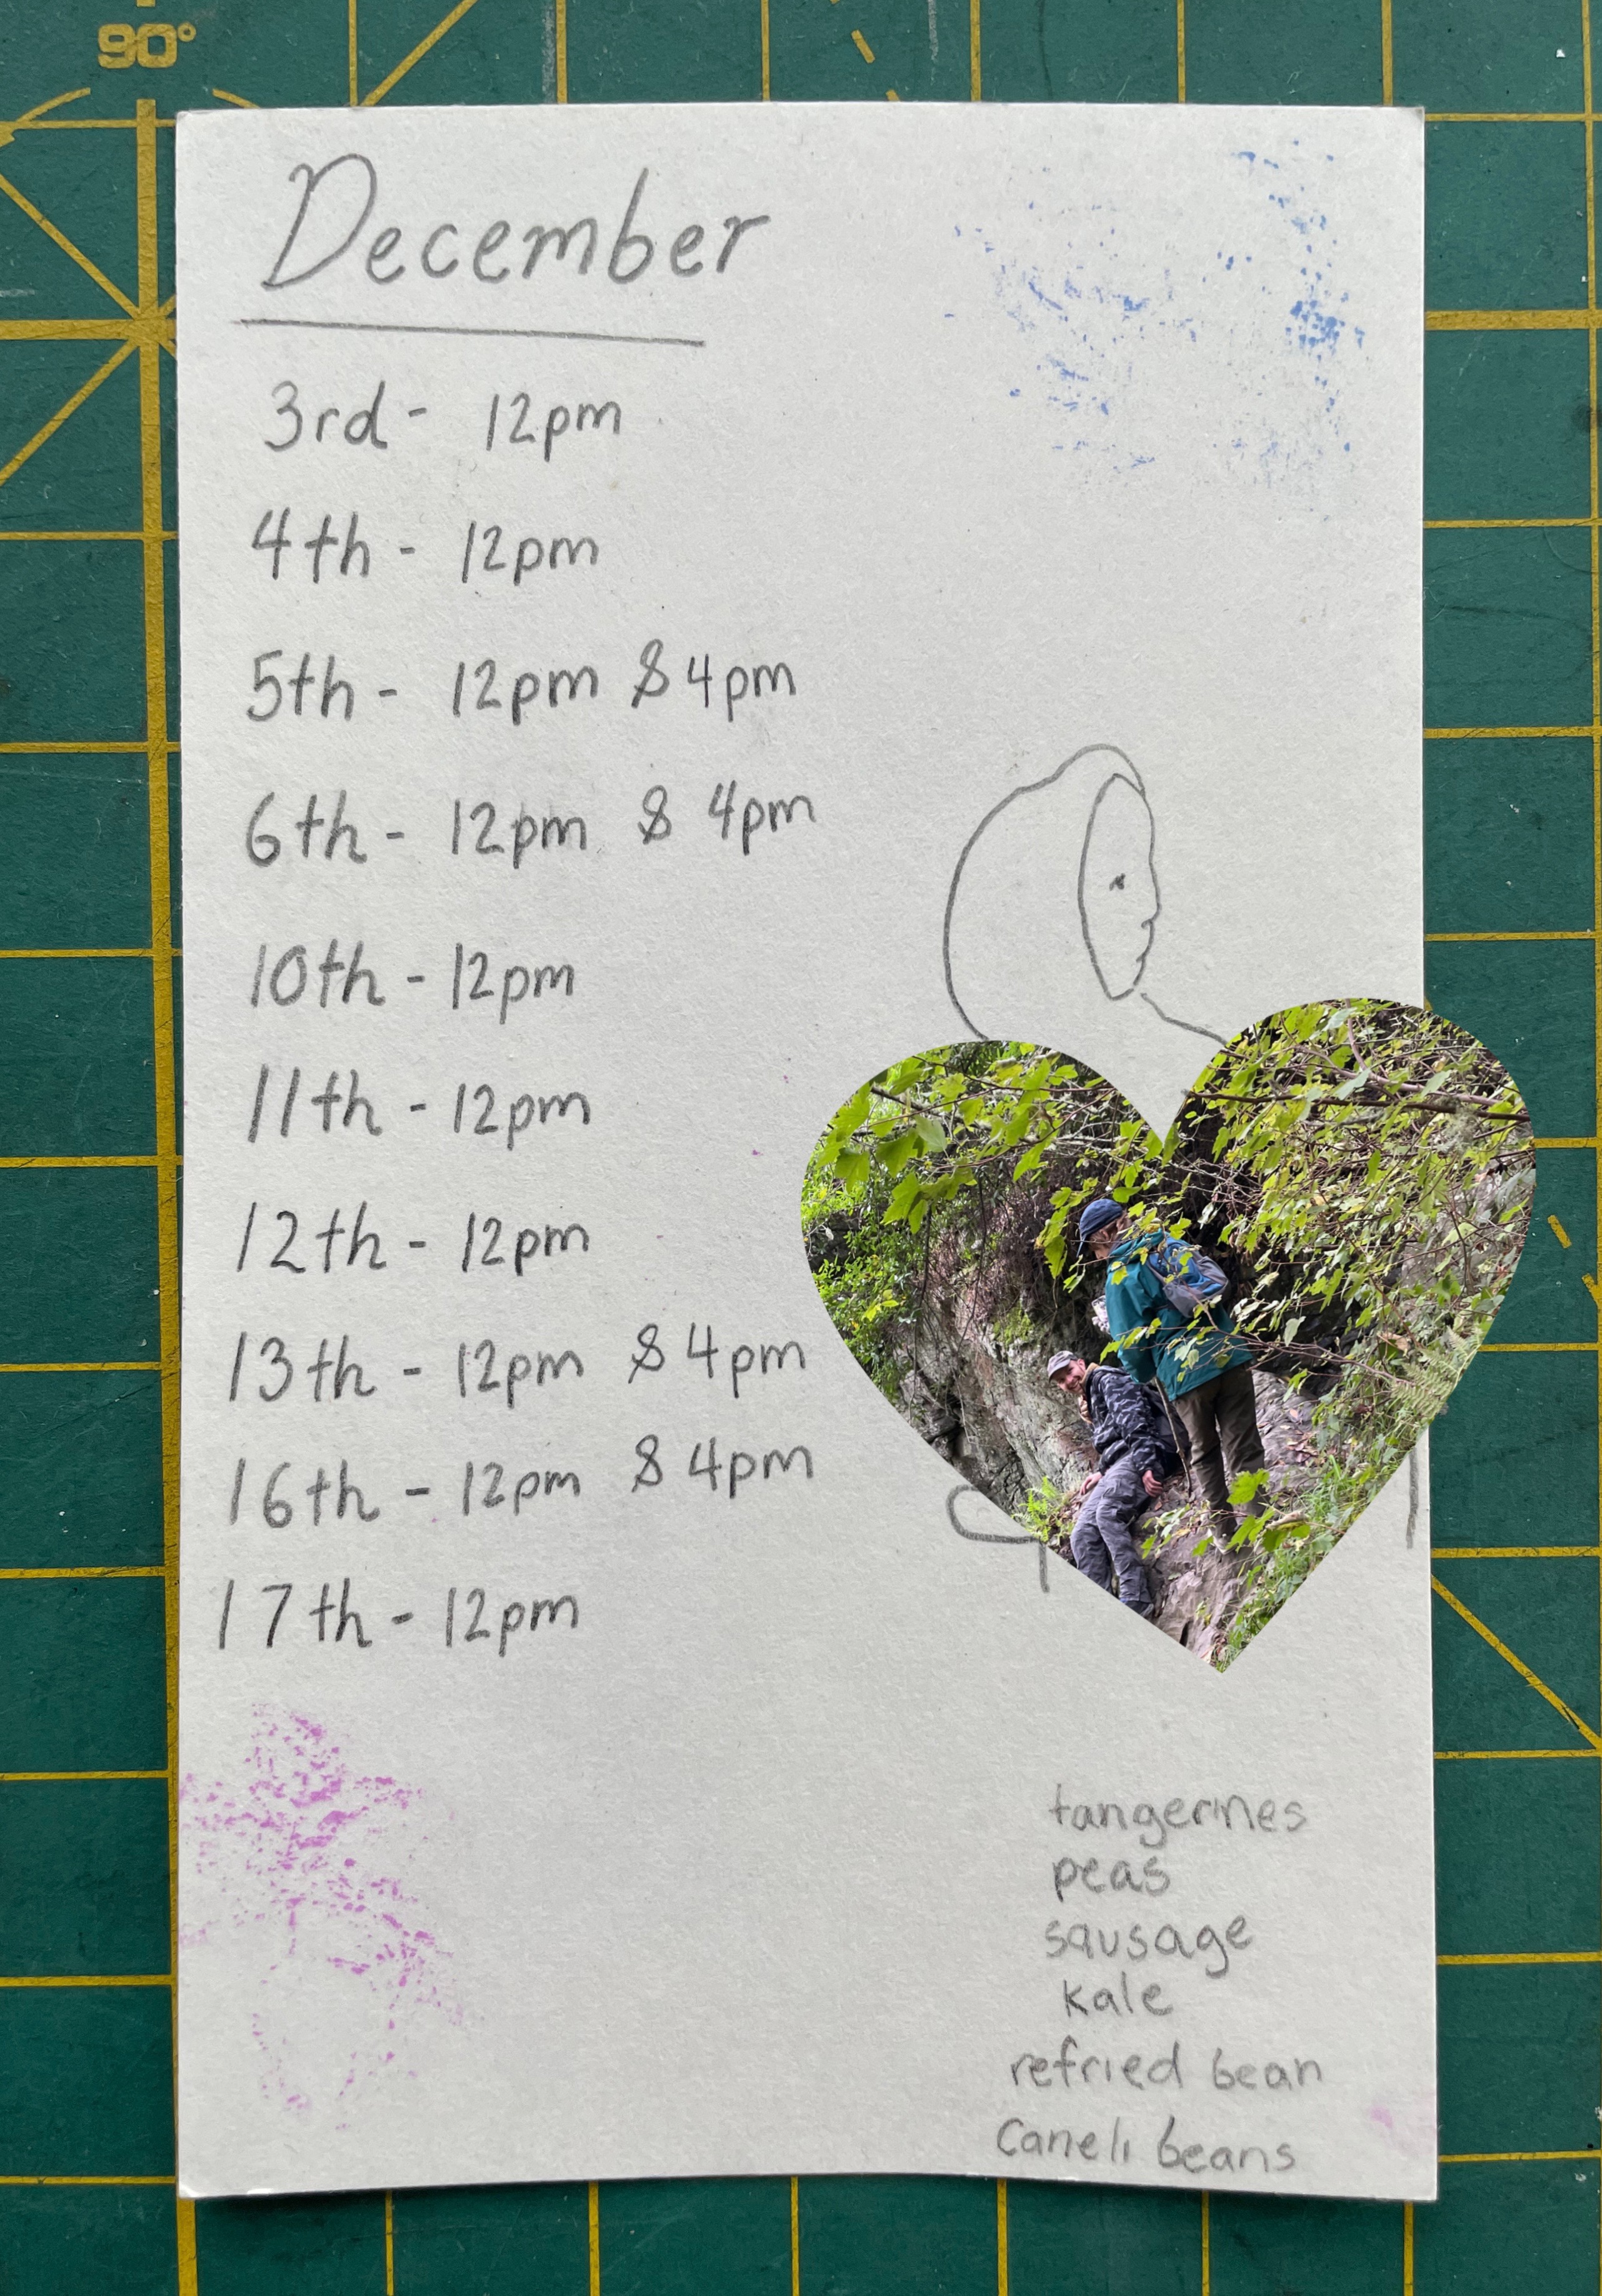 90°
December
3rd - 12pm
4th - 12pm
5th - 12pm & 4pm
6th - 12pm & 4pm
10th - 12pm
11th - 12pm
12th - 12pm
13th - 12pm & 4pm
16th - 12pm & 4pm
17th - 12pm
tangerines
peas
sausage
kale
refried bean
Caneli beans